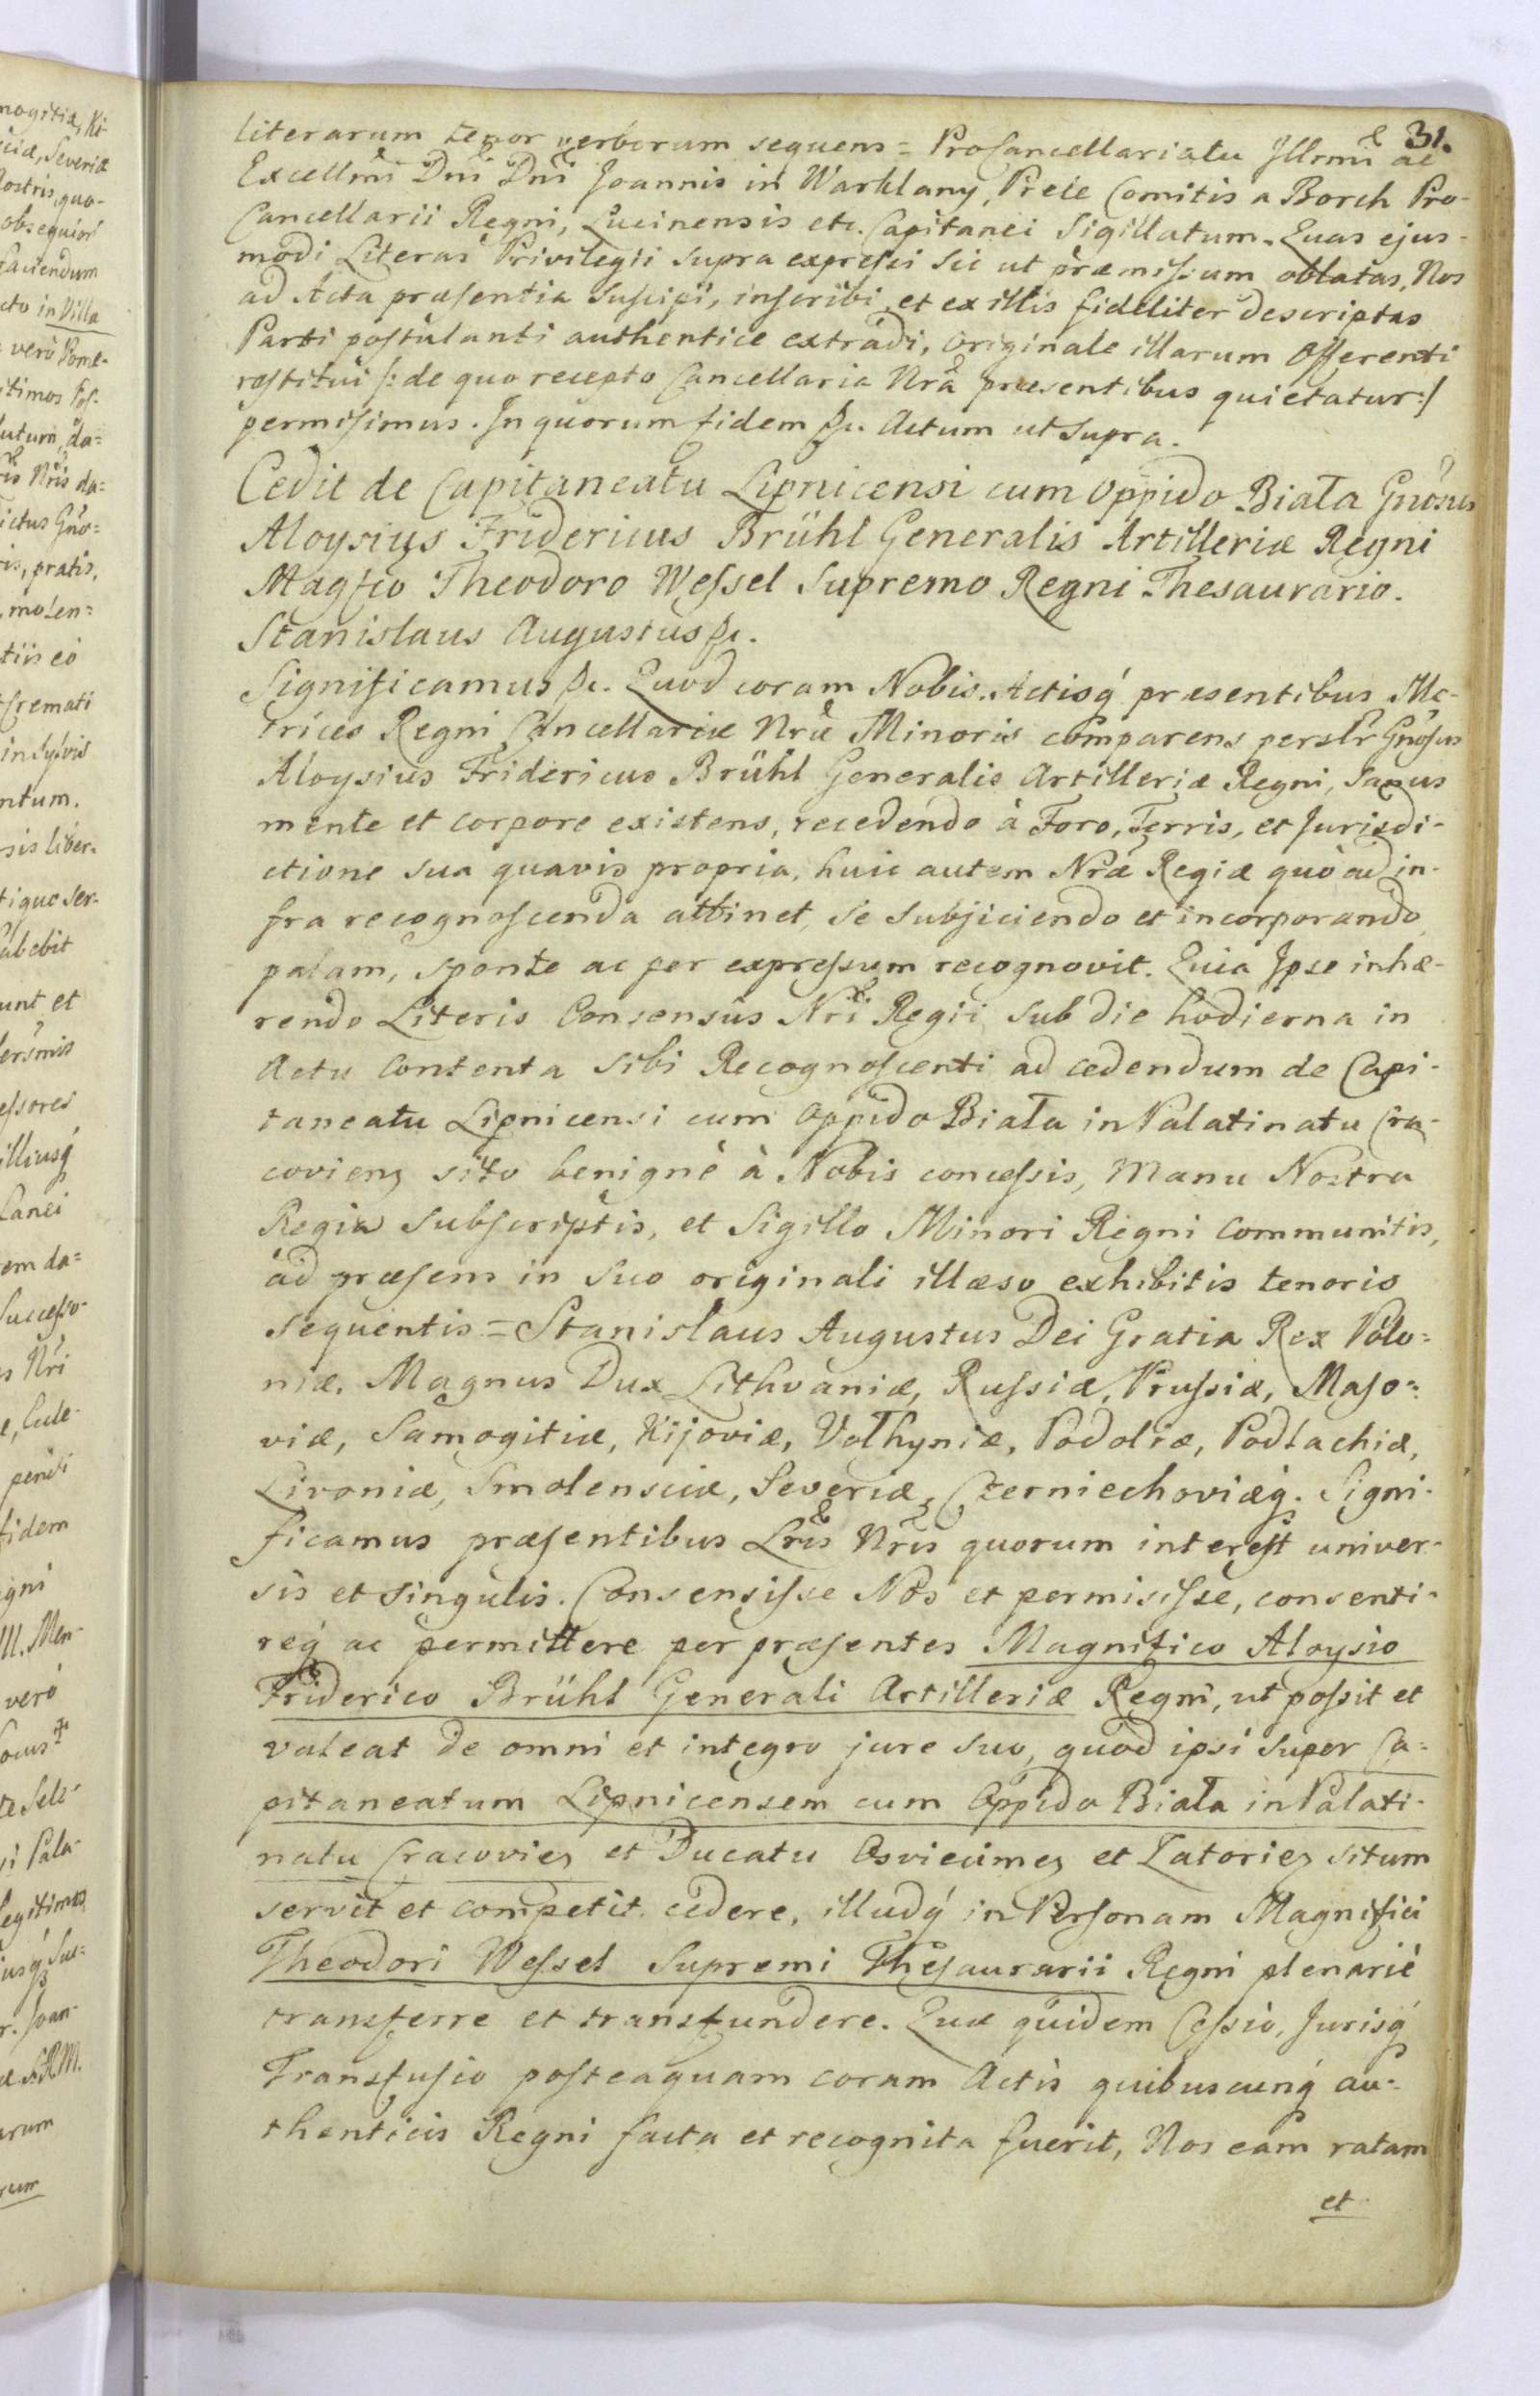 31.
literarum tenor verborum sequens = Procancellariatu Jllrmi ac
Excellmi Dni Dni Joannis in Warklany, Prele Comitis a Borch Pro-
Cancellarii Regni, Lucinensis etc. Capitanei Sigillatum. Quas ejus-
modi Literas Privilegii supra expressi sic ut præmissum oblatas, Nos
ad Acta præsentia suscipi, inscribi et ex illis fideliter descriptas
Parti postulanti authentice extradi, originale illarum Offerenti
restitui /: de quo recepto Cancellaria Nra præsentibus quietatur :/
permisimus. Jn quorum fidem &c. Actum ut supra.
Cedit de Capitaneatu Lipnicensi cum Oppido Biała Gnosus
Aloysius Fridericus Brühl Generalis Artilleriæ Regni
Magfco Theodoro Wessel Supremo Regni Thesaurario.
Stanislaus Augustus &c.
Significamus &c. Quod coram Nobis Actisq́ præsentibus Me-
trices Regni Cancellariæ Nræ Minoris comparens persłr Gnosus
Aloysius Fridericus Brühl Generalis Artilleriæ Regni, sanus
mente et corpore existens, recedendo à Foro, Terris, et Jurisdi-
ctione sua quavis propria, huic autem Nræ Regiæ quò ad in-
fra recognoscenda attinet, se subjiciendo et incorporando
palam, sponte ac per expressum recognovit. Quia Jpse inhæ-
rendo Literis Consensûs Nri Regii sub die hodierna in
Actu Contenta sibi Recognoscenti ad cedendum de Capi-
taneatu Lipnicensi cum Oppido Biała in Palatinatu Cra-
covieng sito benignè à Nobis concessis, Manu Nostra
Regia subscriptis, et Sigillo Minori Regni communitis,
ad præsens in suo originali illæso exhibitis tenoris
sequentis = Stanislaus Augustus Dei Gratia Rex Polo=
niæ, Magnus Dux Lithvaniæ, Russiæ, Prussiæ, Maso=
viæ, Samogitiæ, Kijoviæ, Volhyniæ, Podoliæ, Podlachiæ,
Livoniæ, Smolensciæ, Severiæ, Czerniechoviæq́. Signi-
ficamus præsentibus Lris Nris quorum interest univer-
sis et singulis. Consensisse Nos et permisisse, consenti-
req́ ac permittere per præsentes Magnifico Aloysio
Friderico Brühl Generali Artilleriæ Regni, ut possit et
valeat de omni et integro jure suo, quod ipsi super Ca=
pitaneatum Lipnicensem cum Oppido Biała in Palati-
natu Cracovieg et Ducatu Osviecimeg et Zatorieg situm
servit et competit cedere, illudq́ in Personam Magnifici
Theodori Wessel Supremi Thesaurarii Regni plenariè
transferre et transfundere. Quæ quidem Cessio, Jurisq́
Transfusio posteaquam coram Actis quibuscunq́ au-
thenticis Regni facta et recognita fuerit, Nos eam ratam
et